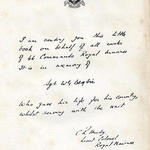 I am sending you this little
book on behalf of all ranks
of 42 Commando Royal Marines
It is in memory of
Sgt W G
Who gave his life for his country,
whilst serving with the unit
Lieut Colonel
Royal Marines